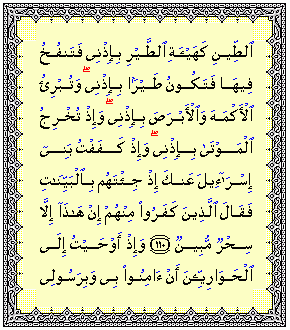 ٱلطِّينِ كَهَيْـَٔةِ ٱلطَّيْرِ بِإِذْنِى فَتَنفُخُ
فِيهَا فَتَكُونُ طَيْرًۢا بِإِذْنِى ۖ وَتُبْرِئُ
ٱلْأَكْمَهَ وَٱلْأَبْرَصَ بِإِذْنِى ۖ وَإِذْ تُخْرِجُ
ٱلْمَوْتَىٰ بِإِذْنِى ۖ وَإِذْ كَفَفْتُ بَنِىٓ
إِسْرَٰٓءِيلَ عَنكَ إِذْ جِئْتَهُم بِٱلْبَيِّنَٰتِ
فَقَالَ ٱلَّذِينَ كَفَرُوا۟ مِنْهُمْ إِنْ هَٰذَآ إِلَّا
سِحْرٌ مُّبِينٌ ﴿١١٠﴾ وَإِذْ أَوْحَيْتُ إِلَى
ٱلْحَوَارِيِّـۧنَ أَنْ ءَامِنُوا۟ بِى وَبِرَسُولِى